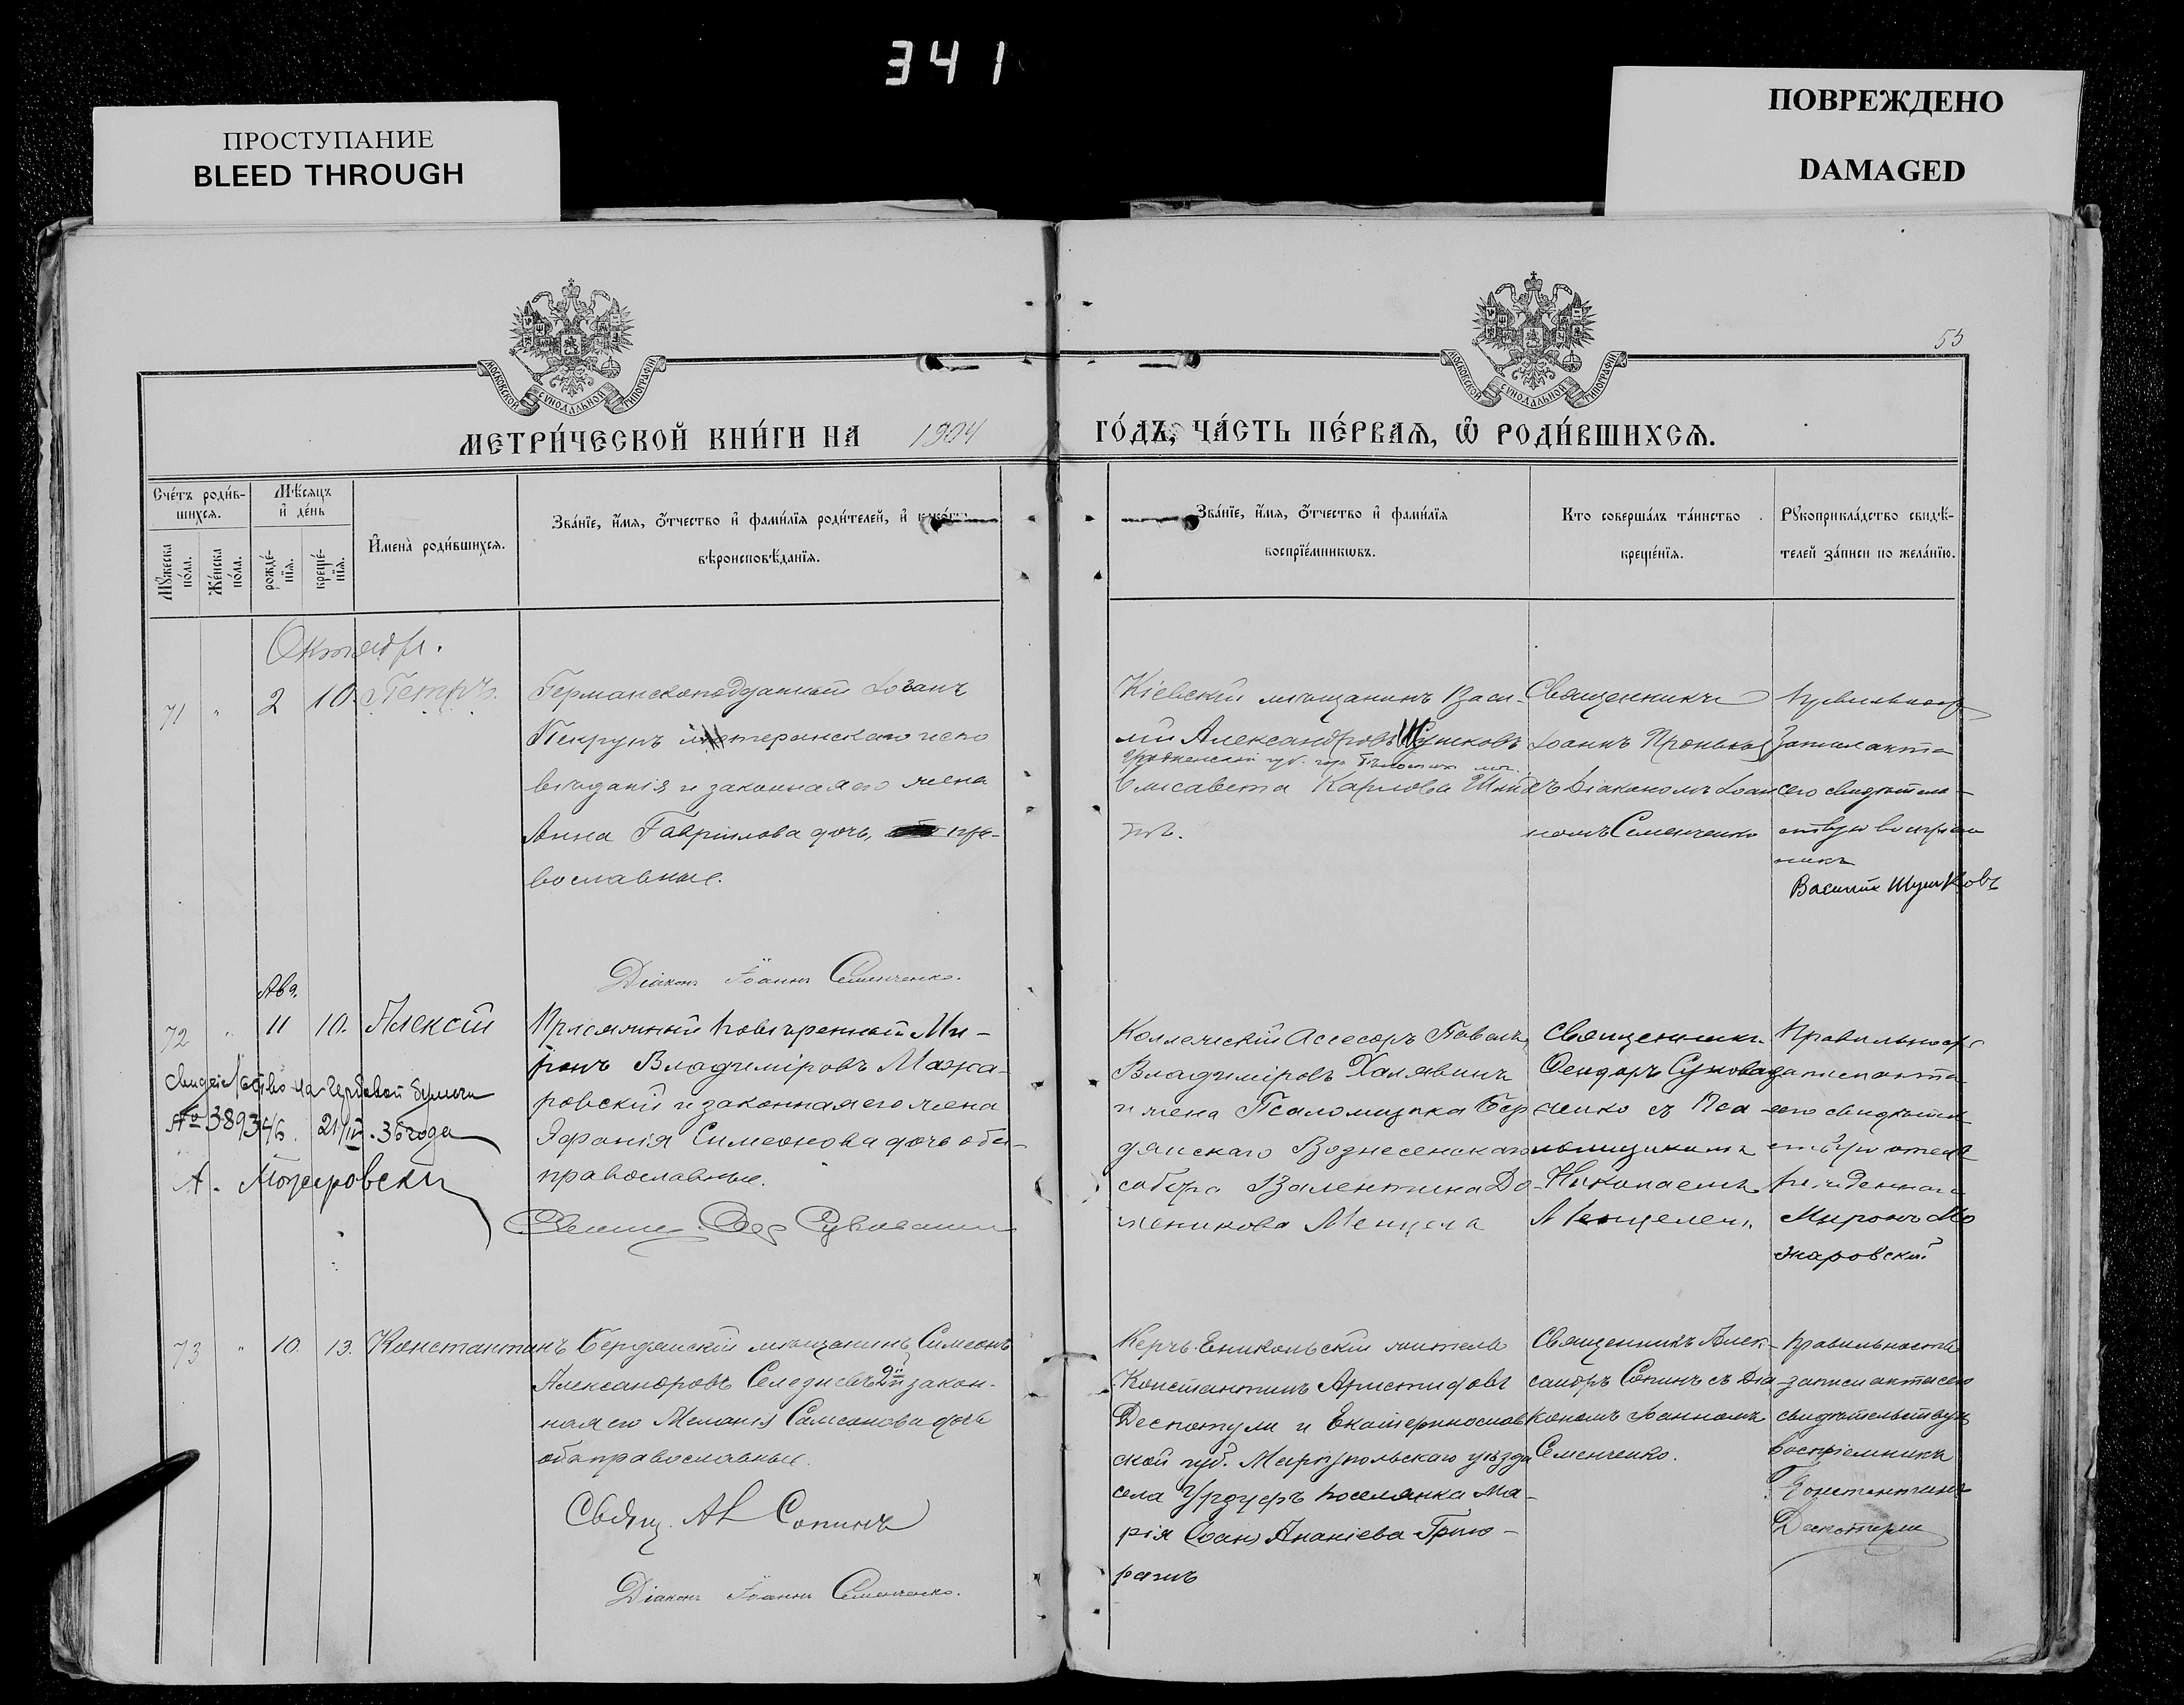 341
ПРОСТУПАНИЕ
BLEED THROUGH
ПОВРЕЖДЕНО
DAMAGED
55
МОСКОВСКОЙ СУНОДАЛЬНОЙ ТИПОГРАФІИ
МОСКОВСКОЙ СУНОДАЛЬНОЙ ТИПОГРАФІИ
МЕТРИ́ЧЕСКОЙ КНИ́ГИ НА 1904 ГО́ДЪ, ЧА́СТЬ ПЕ́РВАЯ, Ѿ РОДИ́ВШИХСѦ.
Сче́тъ роди́в-
шихся.
Мѣ́сяцъ
и҆ де́нь
Мꙋ́жеска
по́ла.
Же́нска
по́ла.
рожде́-
нїя.
креще́-
нїя.
И҆мена̀ роди́вшихся.
Зва́нїе, и҆́мя, ѻ҆́тчество и҆ фами́лїя роди́телей, и҆
вѣроисповѣ́данїя.
Зва́нїе, и҆́мя, ѻ҆́тчество и҆ фами́лїя
воспрїе́мникѡвъ.
Кто соверша́лъ та́инство
креще́нїя.
Рꙋкоприкла́дство свидѣ́-
телей за́писи по жела́нїю.
Октября.
71 " 2 10. Петръ.
Германскоподданный Іоганъ
Пекрунъ лютеранскаго испо
вѣданія и законная его жена
Анна Гаврілова дочь, пра-
вославные.
Діаконъ Іоаннъ Семенченко.
Кіевскій мѣщанинъ Васи-
лій Александровъ Шушковъ
Гродненской губ. гор. Бѣлостокъ
Елисавета Карлова Шмид
тъ.
Священникъ
Іоаннъ Пронько
съ Діакономъ Іоан
номъ Семенченко
Правильность
записи акта
сего свидѣтель-
ствую воспріем
никъ
Василій Шушковъ
Авг.
72 " 11 10. Алексій
Присяжный Повѣренный Ми-
ронъ Владиміровъ Можа-
ровскій и законная его жена
Ифанія Симеонова дочь оба
православные.
Священ. Ѳеод. Суковаченко
Свидѣтельство на гербовой бумагѣ
№ 3893 46. 21/IV. 35 года
А. Можаровский
Коллежскій Асессоръ Павелъ
Владиміровъ Халявинъ
и жена Псаломщика Бер
дянскаго Вознесенскаго
собора Валентина До-
Менцеля
Священникъ
Ѳеодоръ Сукова
ченко съ Пса
ломщикомъ
Николаемъ
Менцелемъ
Правильность
записи акта
сего свидѣтель
ствую отецъ
рожденнаго
Миронъ Мо
жаровскій
73 " 10. 13. Константинъ
Бердянскій мѣщанинъ Симеонъ
Александровъ Селедцевъ и закон-
ная его Меланія Самсонова дочь
оба православные.
Свящ. Ал Сопинъ
Діаконъ Іоаннъ Семенченко.
Керчь-Еникольскій житель
Константинъ Аристидовъ
Деспотули и Екатеринослав
ской губ. Маріупольскаго уѣзда
села Урзуфъ поселянка Ма-
рія Іоан. Ананіева Григо-
рашъ
Священникъ Алек-
сандръ Сопинъ съ Діа
кономъ Іоанномъ
Семенченко.
Правильность
записи акта сего
свидѣтельствую
воспріемникъ
Константинъ
Деспотули